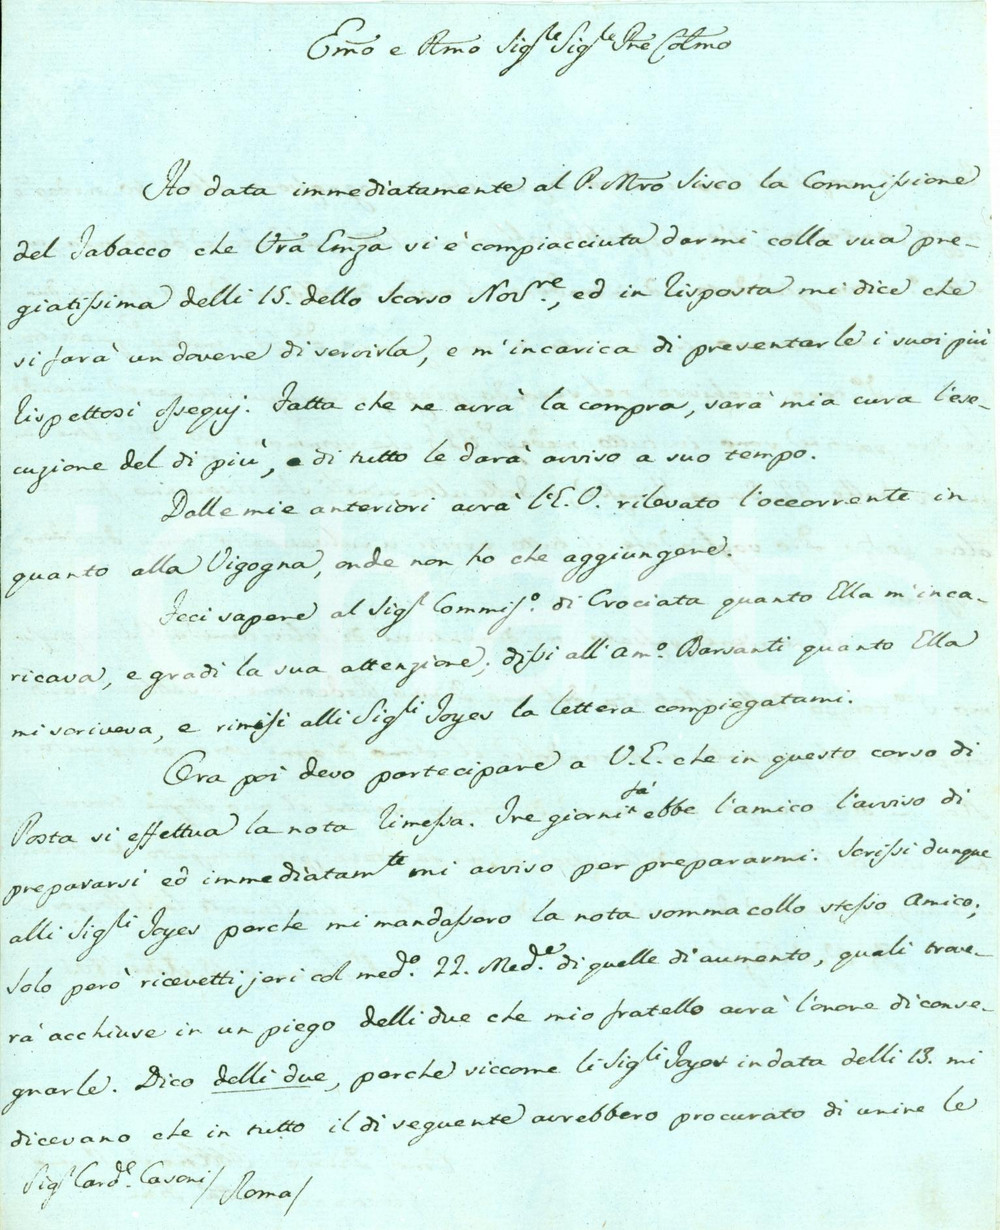 Emo e Rmo Sigre Sigre Pne Colmo
Ho data immediatamente al P. Mro Sisco la Commissione
del Tabacco che Vra Emza si è compiacciuta darmi colla sua pre-
giatissima delli 15. dello scorso Novbre, ed in risposta mi dice che
si farà un dovere di servirla, e m'incarica di presentarle i suoi più
rispettosi ossequj. Fatta che ne avrà la compra, sarà mia cura l'ese-
cuzione del di più, e di tutto le darà avviso a suo tempo.
Dalle mie anteriori avrà l'E.V. rilevato l'occorrente in
quanto alla Vigogna, onde non ho che aggiungere.
Feci sapere al Sigr Commiso. di Crociata quanto Ella m'inca-
ricava, e gradì la sua attenzione; dissi all'amo. Barsanti quanto Ella
mi scriveva, e rimisi alli Sigli Joyes la lettera compiegatami.
Ora poi devo partecipare a V.E. che in questo corso di
Posta si effettua la nota rimessa. Tre giorni fà ebbe l'amico l'avviso di
prepararsi ed immediatamte mi avvisò per prepararmi. Scrissi dunque
alli Sigli Joyes perche mi mandassero la nota somma collo stesso Amico;
solo però ricevetti jeri col medo. 22. Mede. di quelle di aumento, quali trove-
rà acchiuse in un piego delli due che mio fratello avrà l'onore di conse-
gnarle. Dico delli due, perche siccome li Sigli Joyes in data delli 13. mi
dicevano che in tutto il di seguente avrebbero procurato di unire le
Sigr Carde. Casoni / Roma /